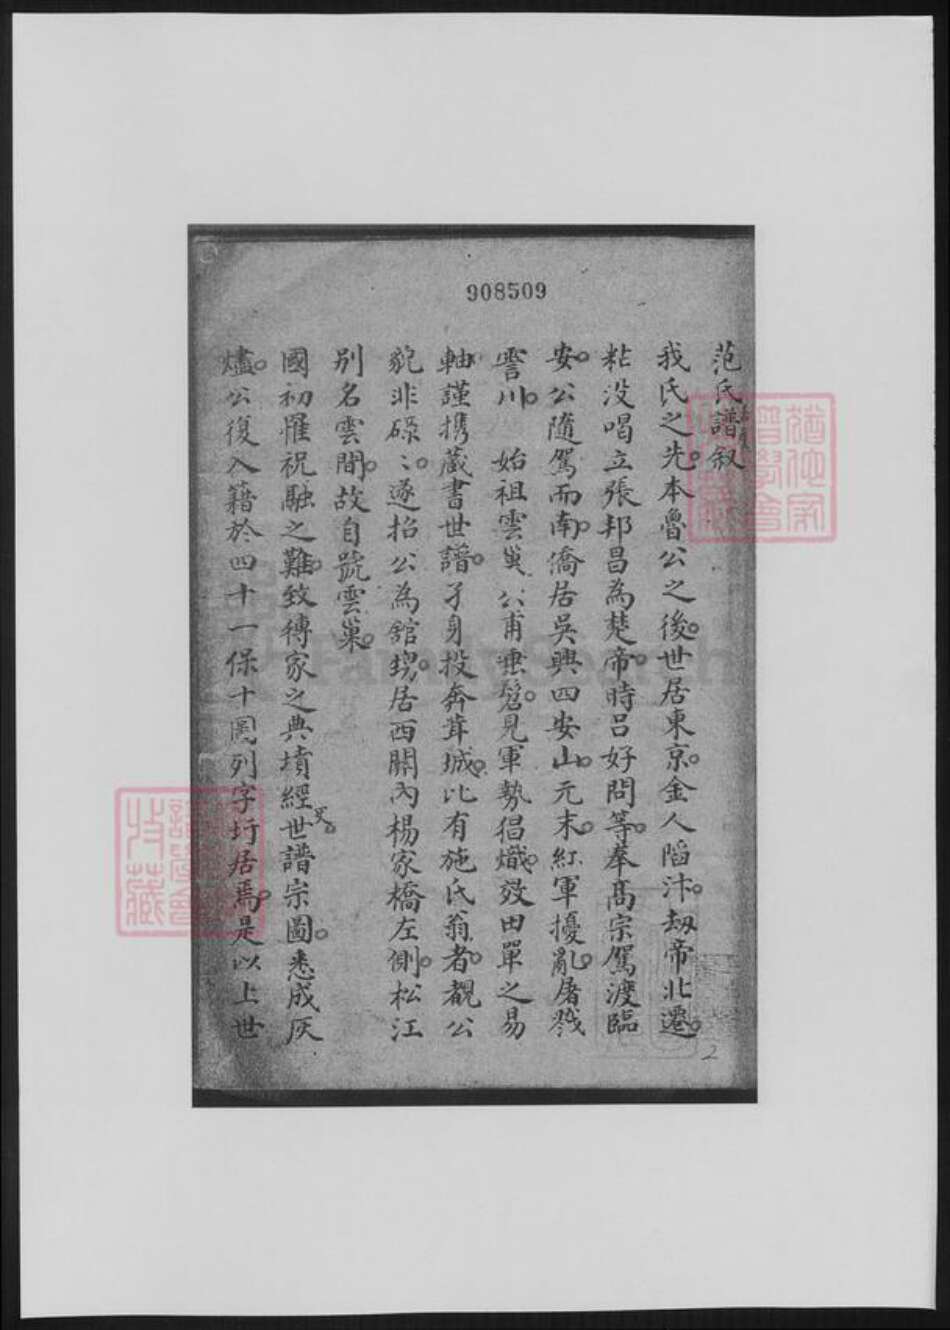 908509
范氏譜叙
我氏之先本魯公之後世居東京金人陷汴刼帝北遷
粘没唱立張邦昌為楚帝時呂好問等奉高宗駕渡臨
安公隨駕而南僑居吳興四安山元末紅軍擾亂屠戮
霅川　始祖雲巢公甫垂髫見軍勢猖熾效田單之易
軸謹携藏書世譜孑身投奔茸城比有施氏翁者覩公
貌非碌〻遂招公為舘甥居西關內楊家橋左側松江
别名雲間故自號雲巢
國初罹祝融之難致傳家之典墳經史世譜宗圖悉成灰
燼公復入籍於四十一保十圖列字圩居焉是以上世
2